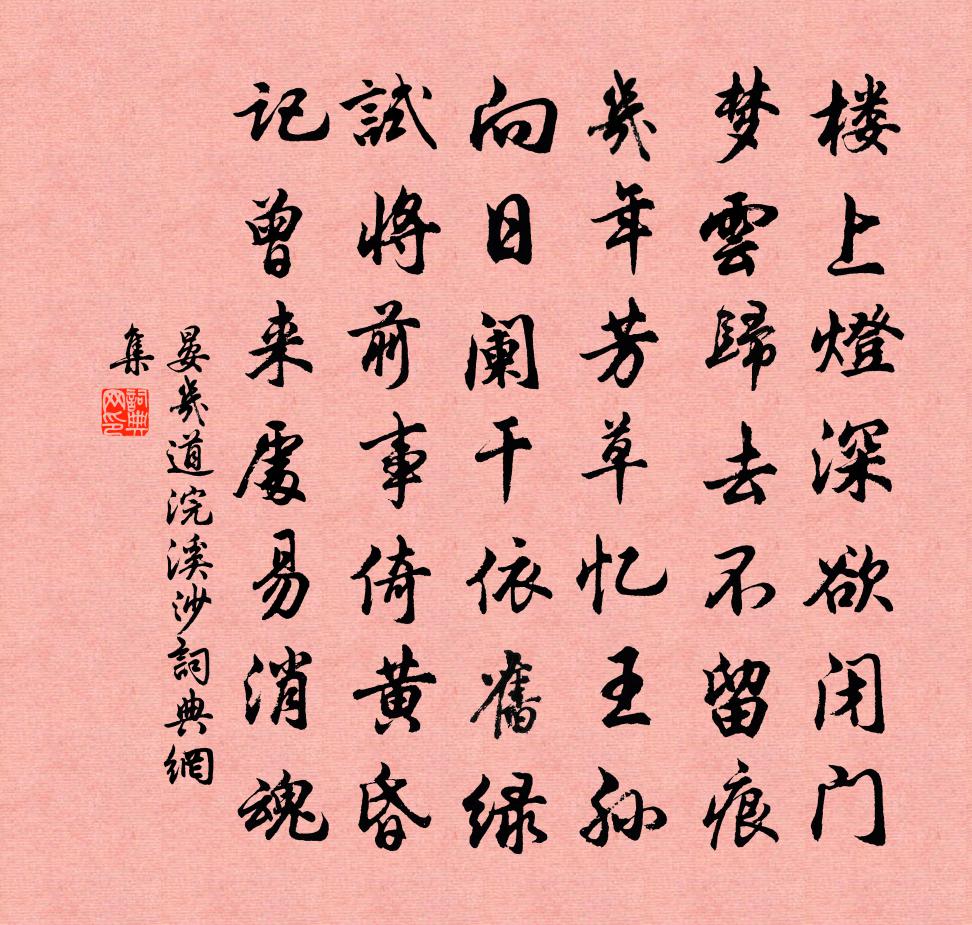 楼上燈深欲闭门
梦雲歸去不留痕
幾年芳草忆王孙
向日阑干依舊绿
試將前事倚黄昏
记曾来處易消魂
晏幾道浣溪沙詞典網
集
詞典网印